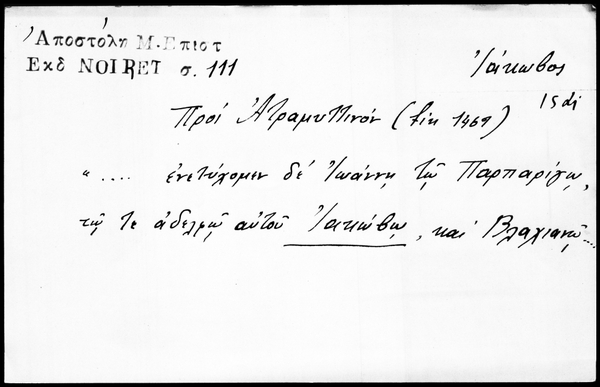 Ἀποστόλη Μ. Επιστ
Εκδ NOIRET σ. 111
Ἰάκωβος
Πρός Ἀτραμυττινόν (fin 1469)
".... ἐνετύχομεν δέ Ἰωάννῃ τῷ Παρπαρίγῳ,
τῷ τε ἀδελφῷ αὐτοῦ Ἰακώβῳ, καί Βλαχιανῷ....